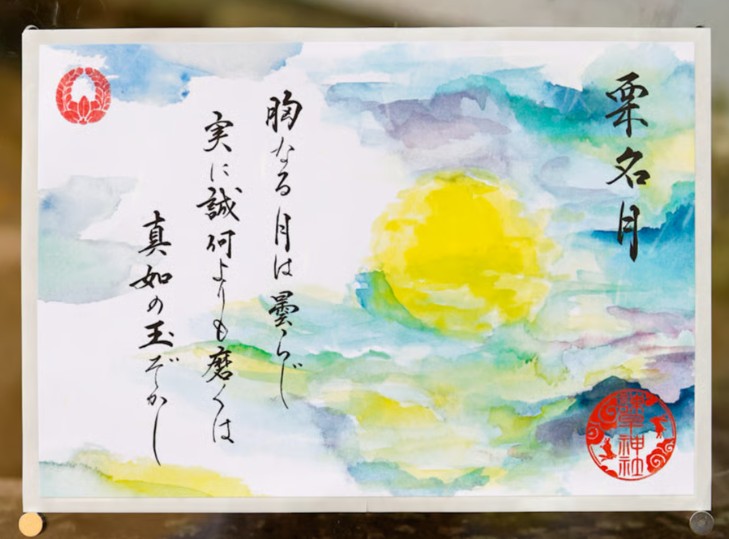 栗名月
胸なる月は曇らじ
実に誠何よりも磨くは
真如の玉ぞかし
神社